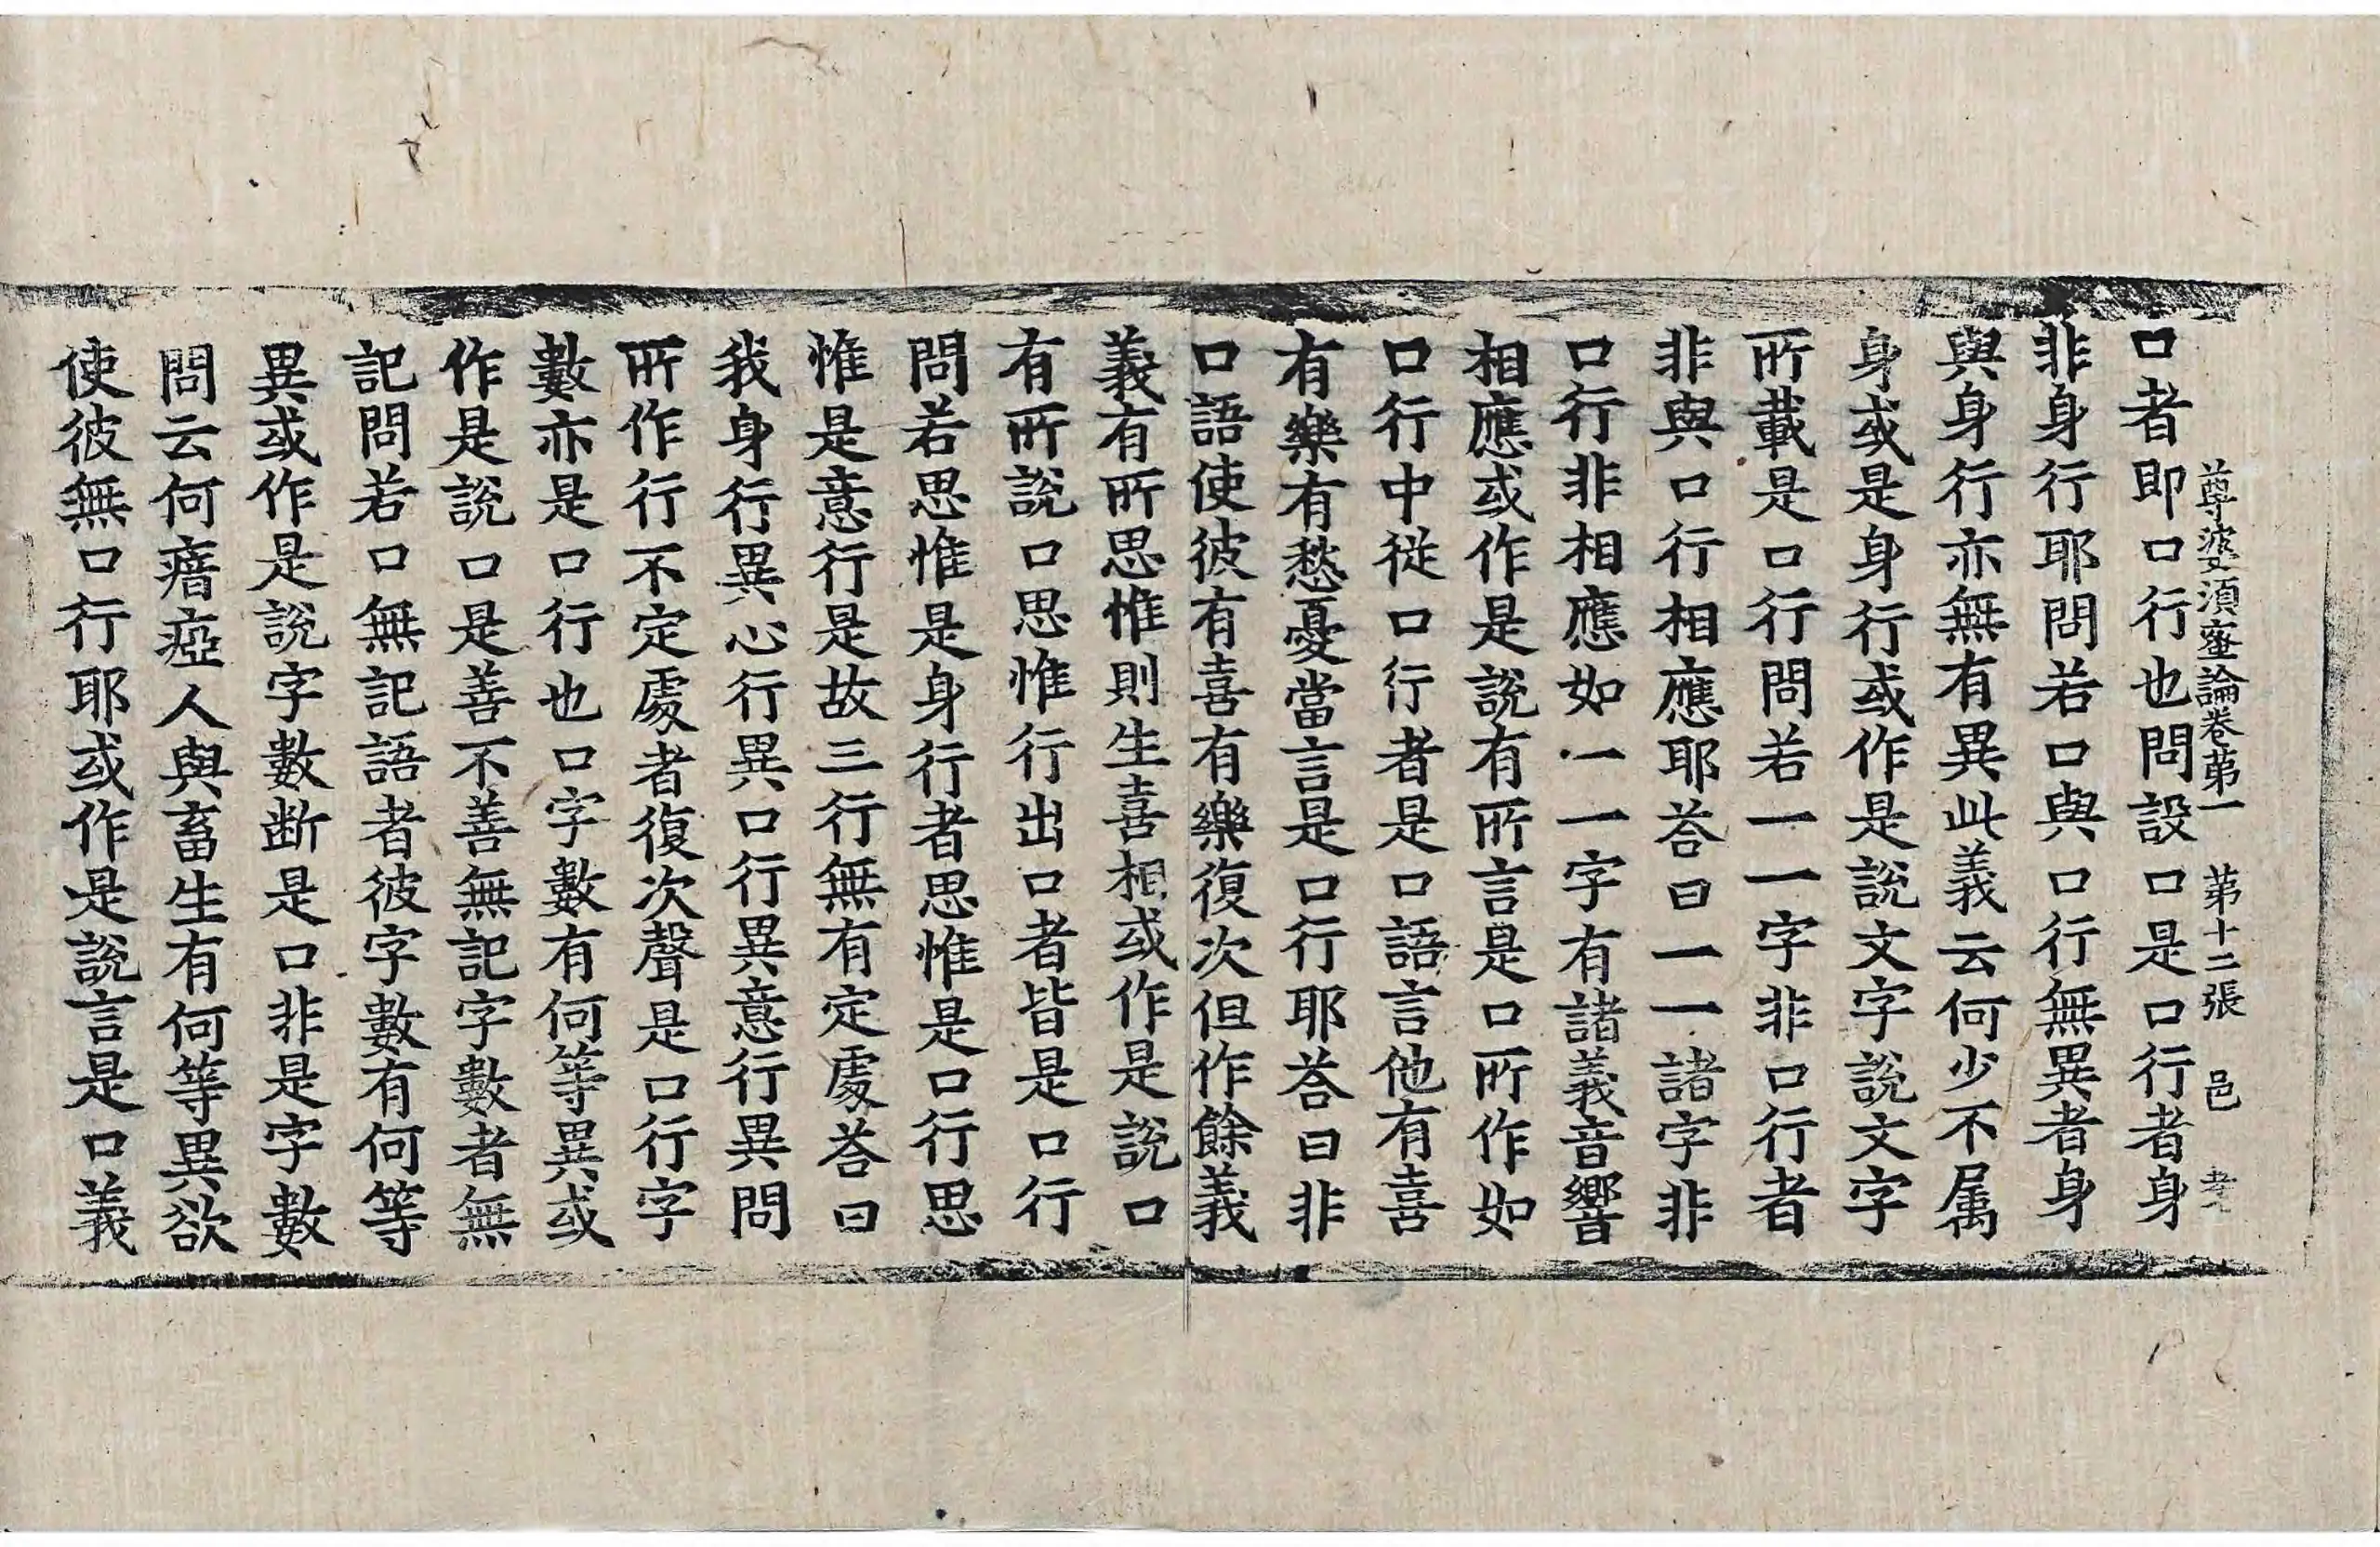 尊婆須蜜論卷第一 第十二張 邑 老
口者即口行也問設口是口行者身
非身行耶問若口與口行無異者身
與身行亦無有異此義云何少不属
身或是身行或作是說文字說文字
所載是口行問若一一字非口行者
非與口行相應耶荅曰一一諸字非
口行非相應如一一字有諸義音響
相應或作是說有所言是口所作如
口行中從口行者是口語言他有喜
有樂有愁憂當言是口行耶荅曰非
口語使彼有喜有樂復次但作餘義
義有所思惟則生喜相或作是說口
有所說口思惟行出口者皆是口行
問若思惟是身行者思惟是口行思
惟是意行是故三行無有定處荅曰
我身行異心行異口行異意行異問
所作行不定處者復次聲是口行字
數亦是口行也口字數有何等異或
作是說口是善不善無記字數者無
記問若口無記語者彼字數有何等
異或作是說字數断是口非是字數
問云何瘖瘂人與畜生有何等異欲
使彼無口行耶或作是說言是口義